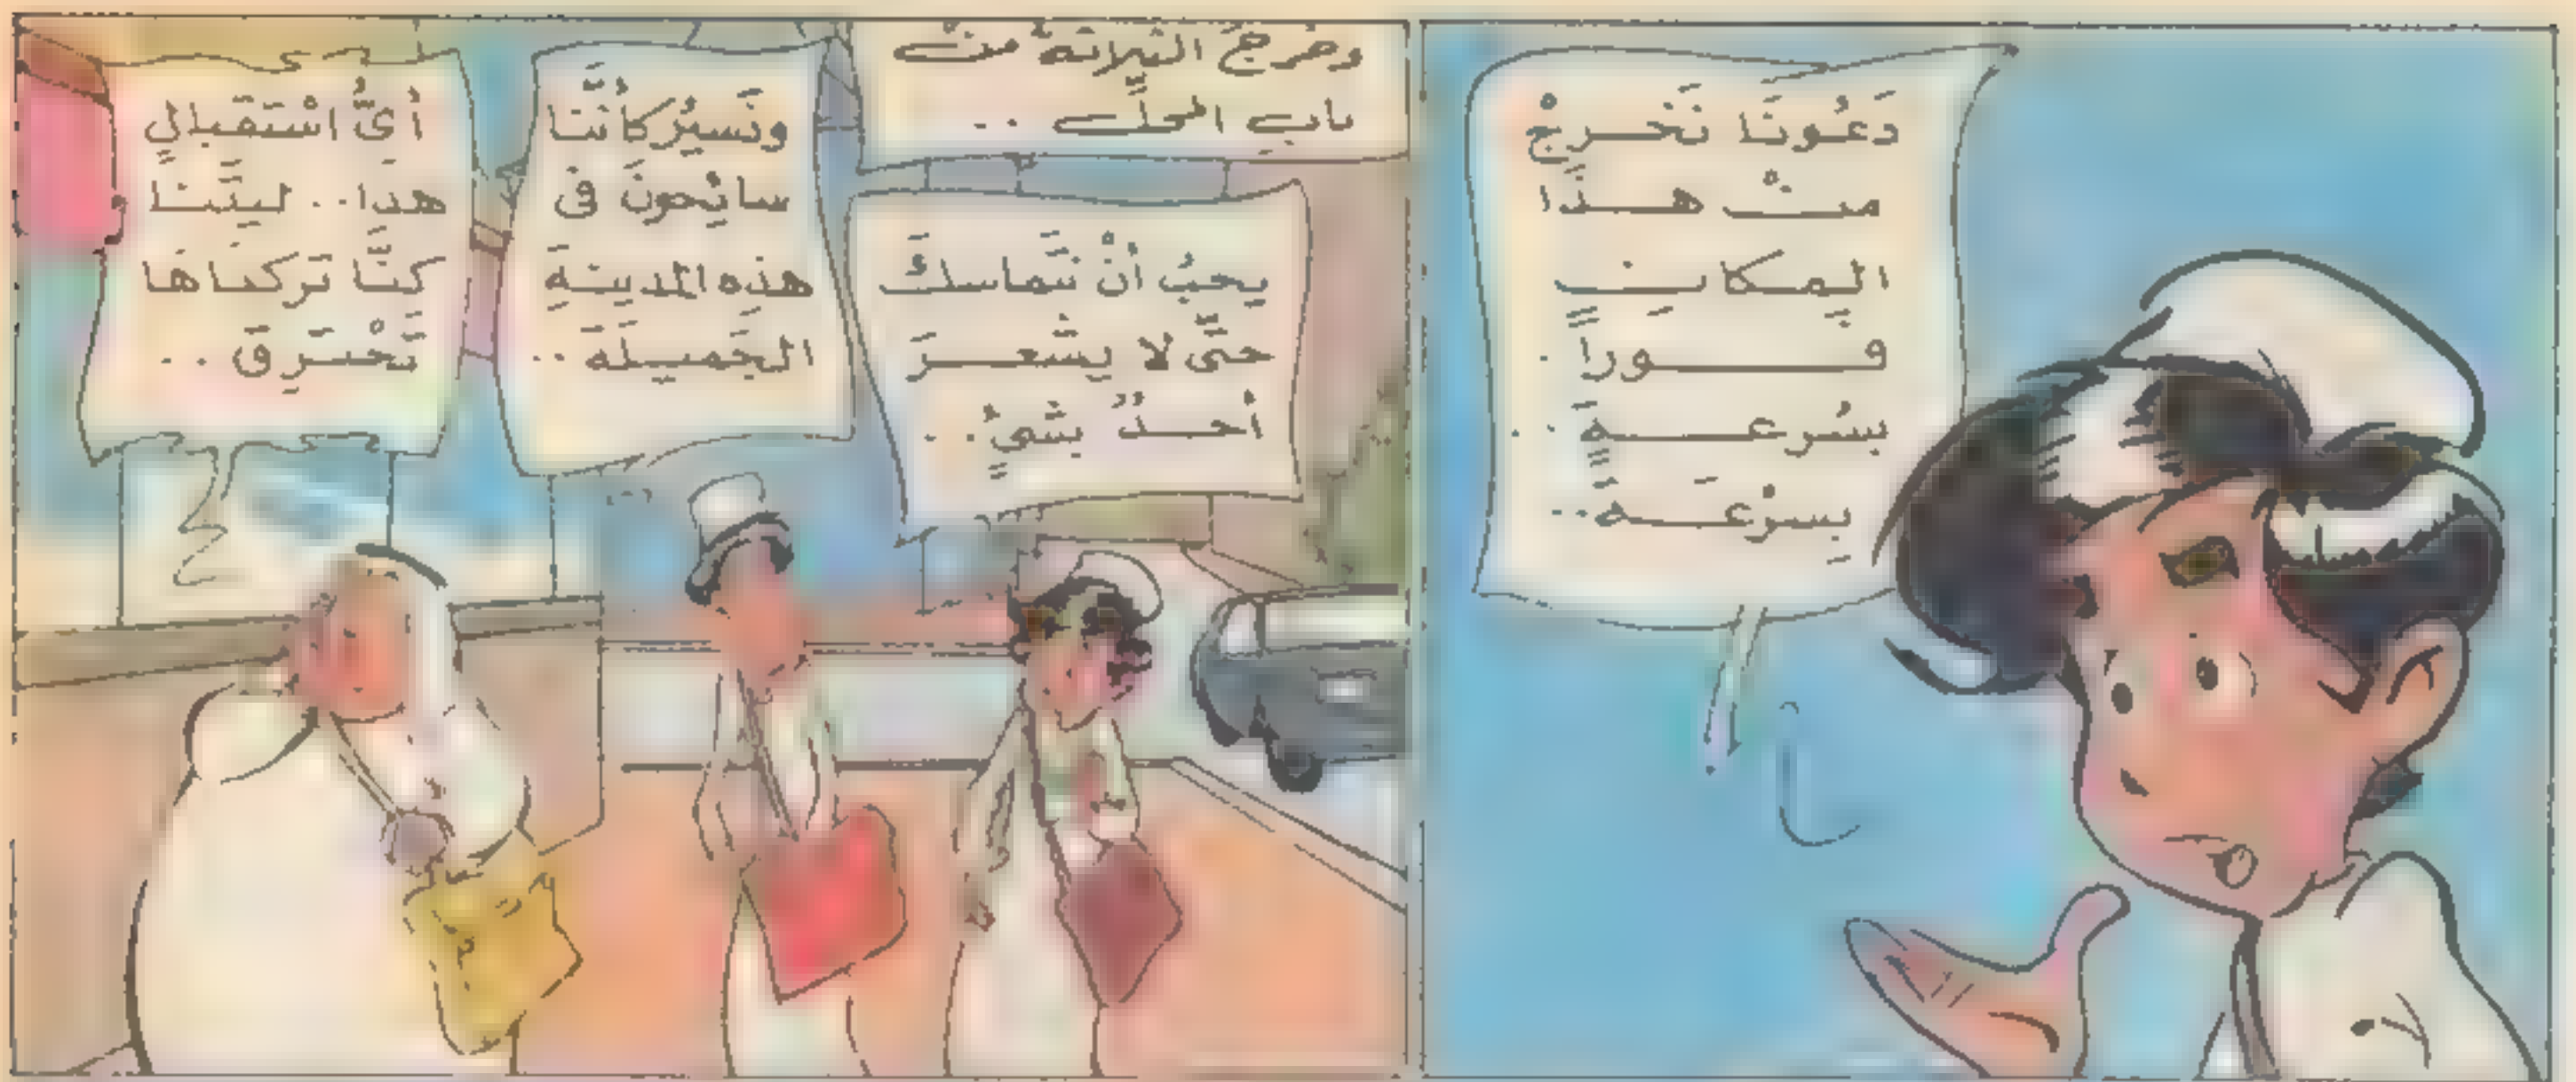 دَعُونَا نَخْرجْ
منْ هـذَا
المكانِ
فوراً .
بسُرعةٍ ..
بِسرْعَةٍ ..
وخرجَ الثلاثةُ منْ
بابِ المحلِّ ..
يجبُ أنْ نتَماسكَ
حتَّى لا يشْعرَ
أحدٌ بشئٍ ..
ونَسيرُ كأنَّنا
سائِحونَ فى
هذِه المدينةِ
الجَميلَة ..
أىُّ اسْتقبالٍ
هذا .. ليتَنا
كنَّا تركنَاهَا
تَحْترِقَ ..